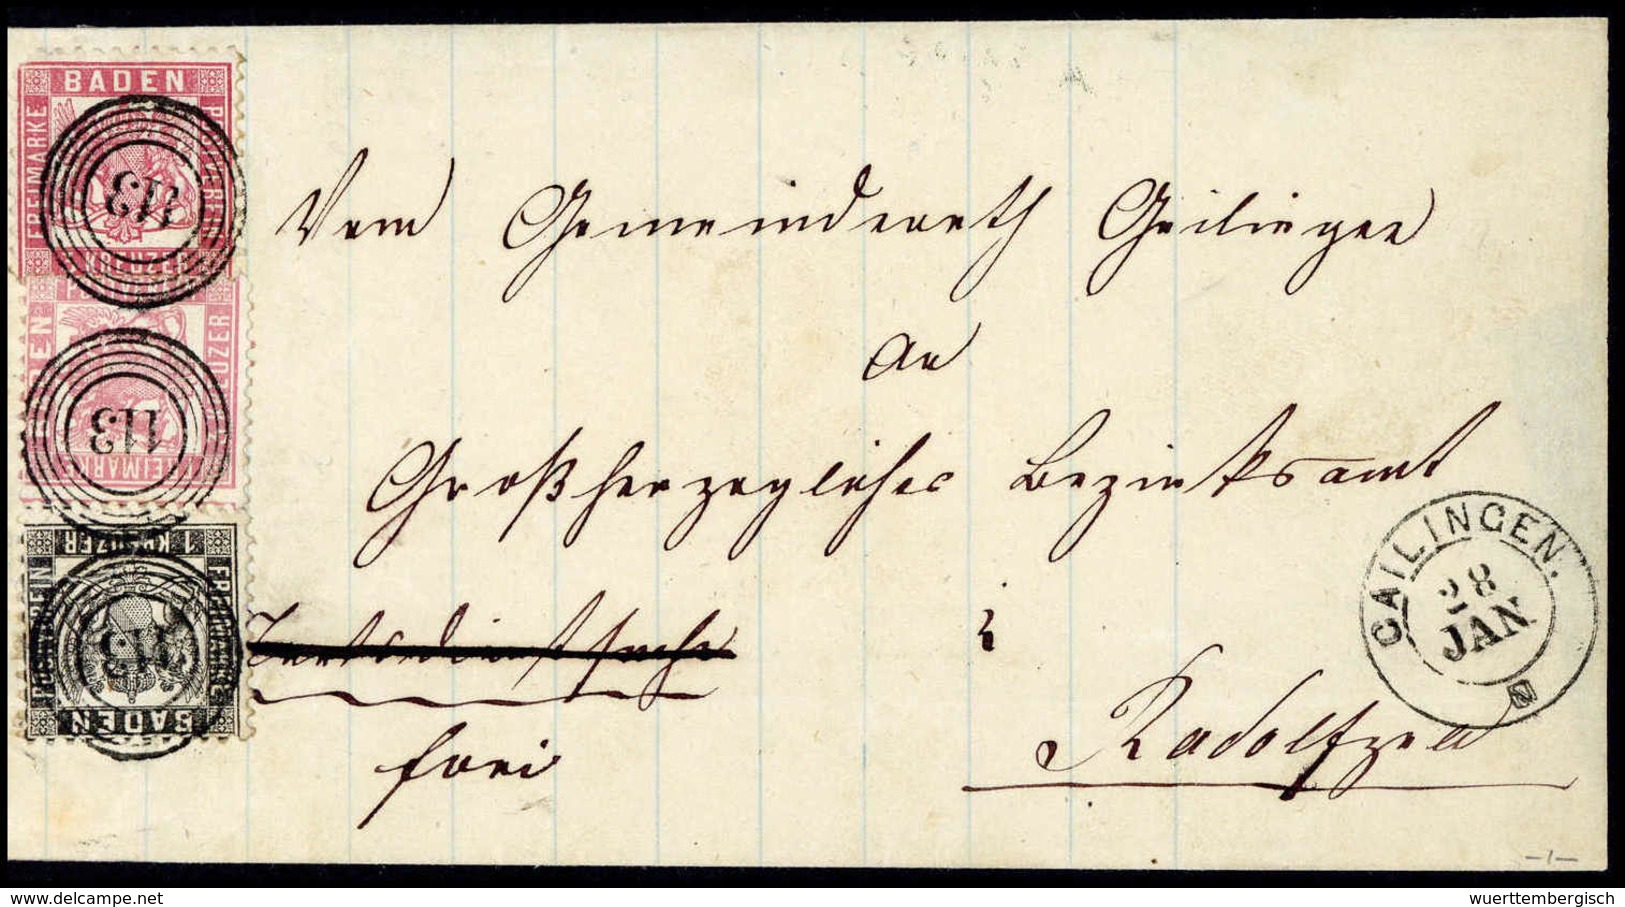 BADEN
FREIMARKE
KREUZER
113
Vom Gemeinderath Geilingen
an
Großherzogliches Bezirksamt
frei
Radolfzell
113
FREIMARKE
KREUZER
1 KREUZER
113
BADEN
GAILINGEN.
28
JAN
-1-
wuerttembergisch